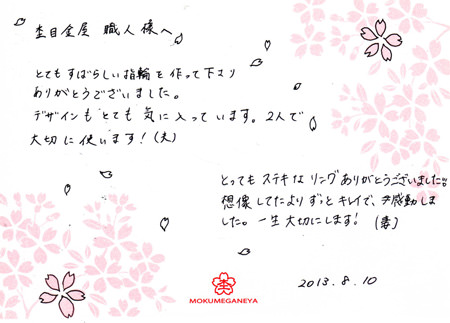 杢目金屋 職人様へ
とてもすばらしい指輪を作って下さり
ありがとうございました。
デザインもとても気に入っています。2人で
大切に使います!(夫)
とってもステキなリングありがとうございました!!
想像してたよりずっとキレイで、感動しま
した。一生大切にします! (妻)
杢
MOKUMEGANEYA
2013.8.10